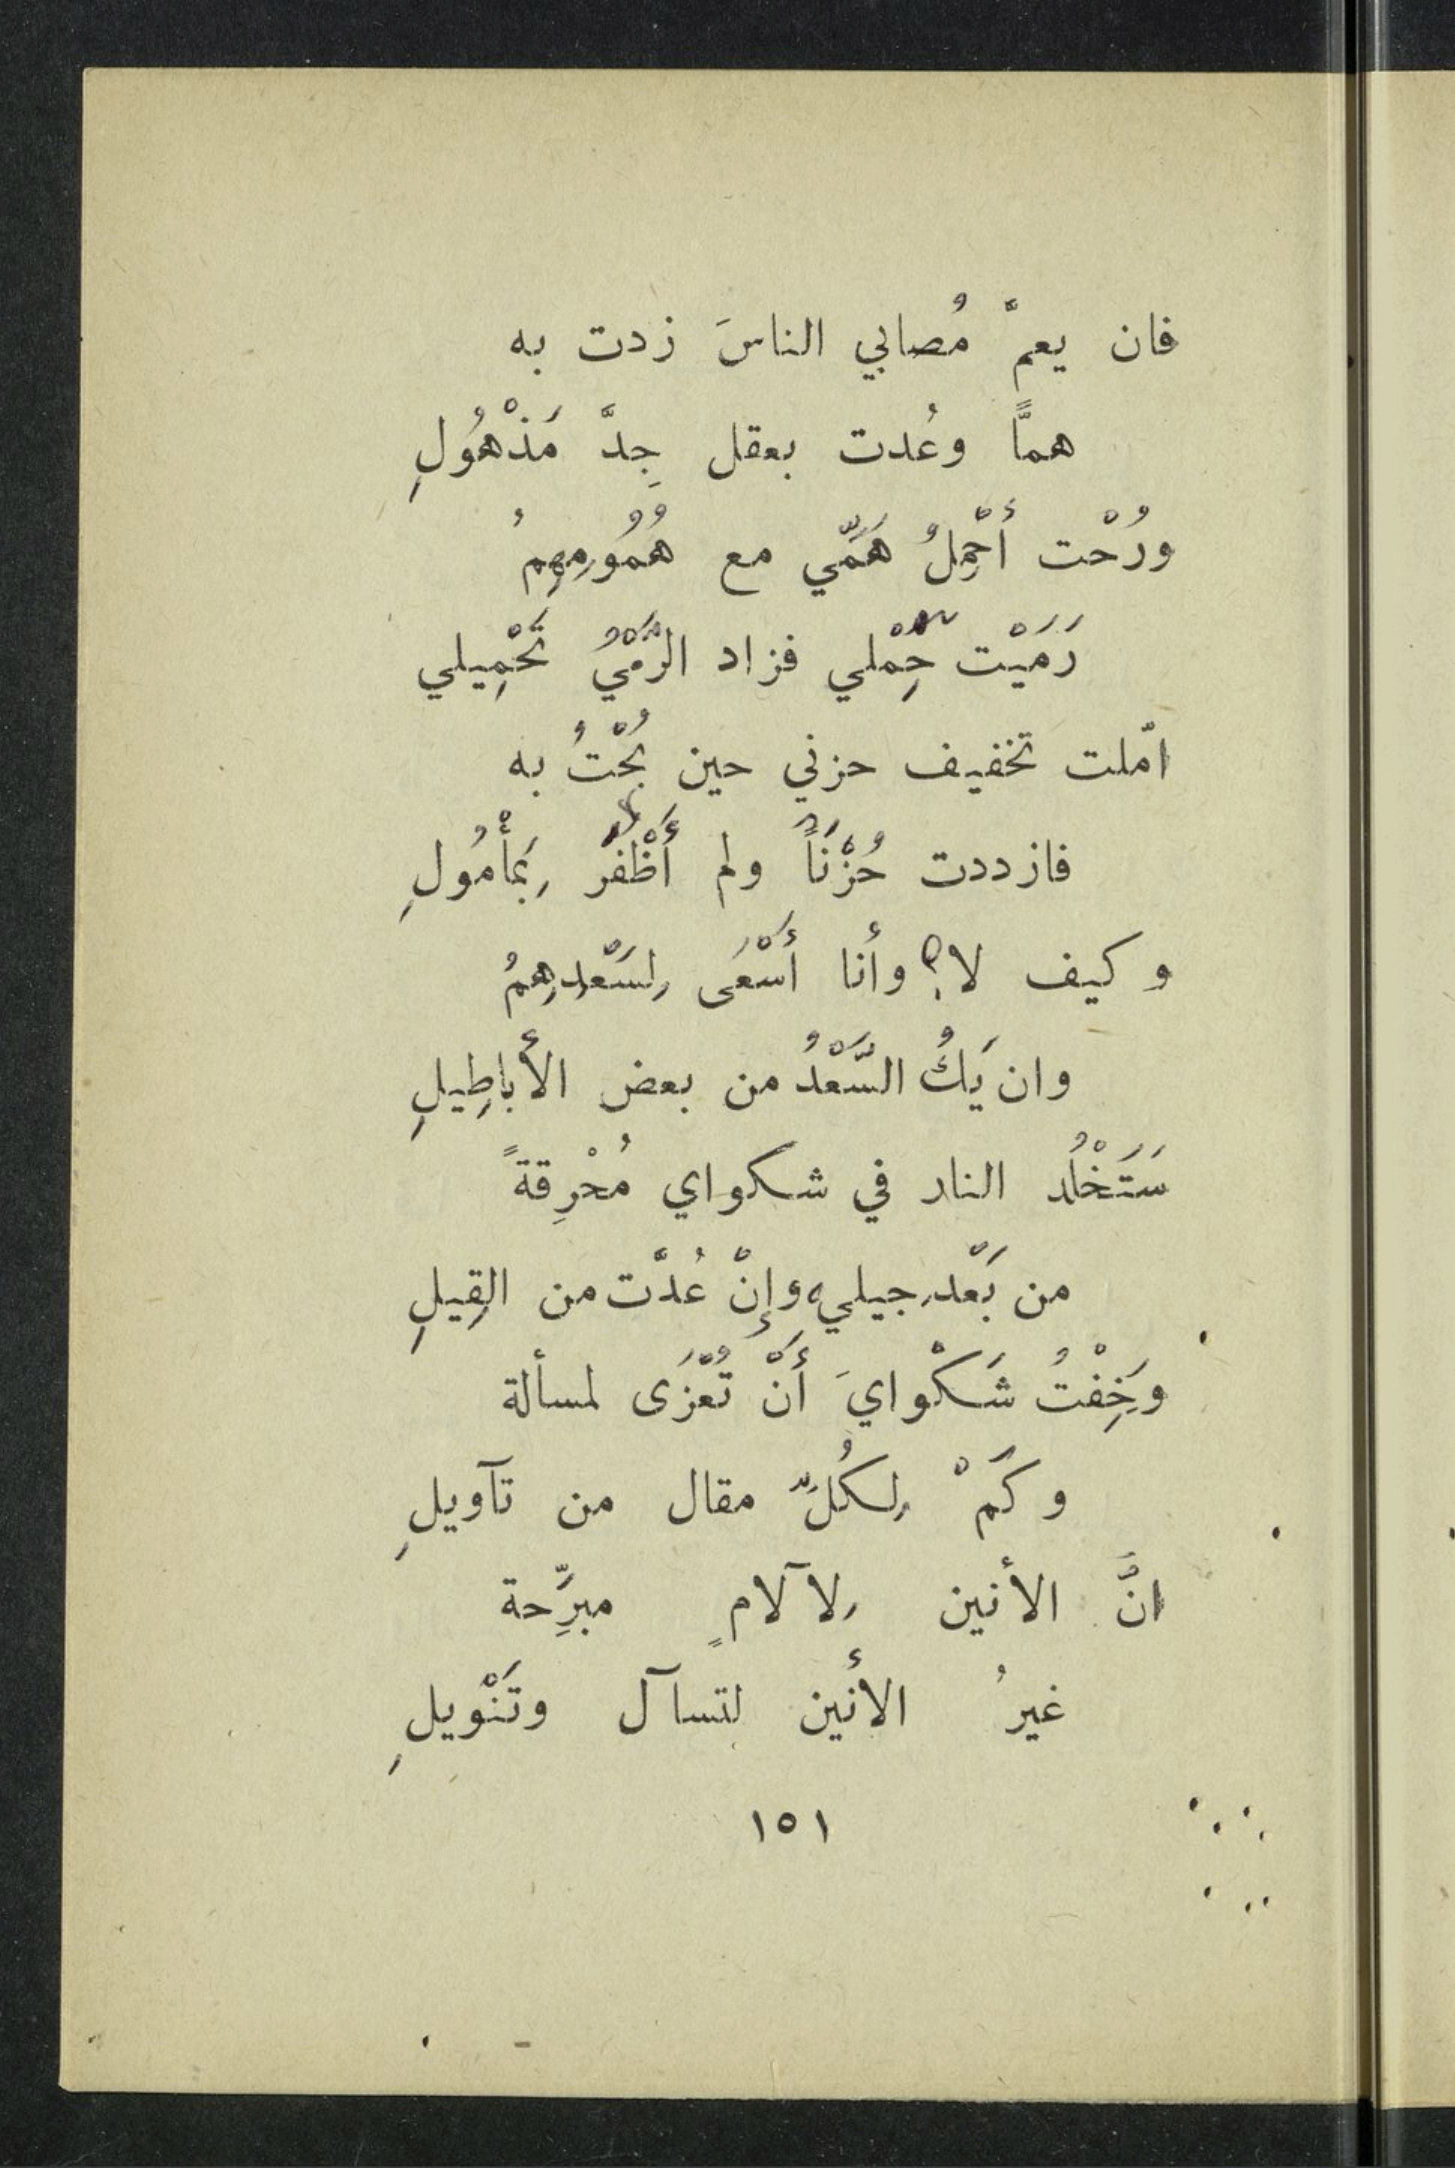 فان يعمَّ مُصابي الناسَ زدت به
همًّا وعُدت بعقل جِدَّ مَذْهُولِ
ورُحْت أَحْمِلُ هَمِّي مع هُمُومِهِمُ
رَمَيْت حِمْلي فزاد الرَّمْيُ تَحْمِيلي
امّلت تخفيف حزني حين بُحْتُ به
فازددت حُزْنَاً ولم أَظْفَرْ بِمَأْمُولِ
وكيف لا؟ وأنا أَسْعَى لِسَعْدِهِمُ
وان يَكُ السَّعْدُ من بعض الأباطِيلِ
سَتَخْلُد النار في شكواي مُحْرِقةً
من بَعْدِ جيلي، وإِنْ عُدَّت من القِيلِ
وَخِفْتُ شَكْوايَ أَنْ تُعْزَى لمسألة
وكَمْ لِكُلِّ مقال من تآويلِ
انَّ الأنين لِآلامٍ مبرِّحة
غيرُ الأنين لتسآل وتَنْويلِ
١٥١